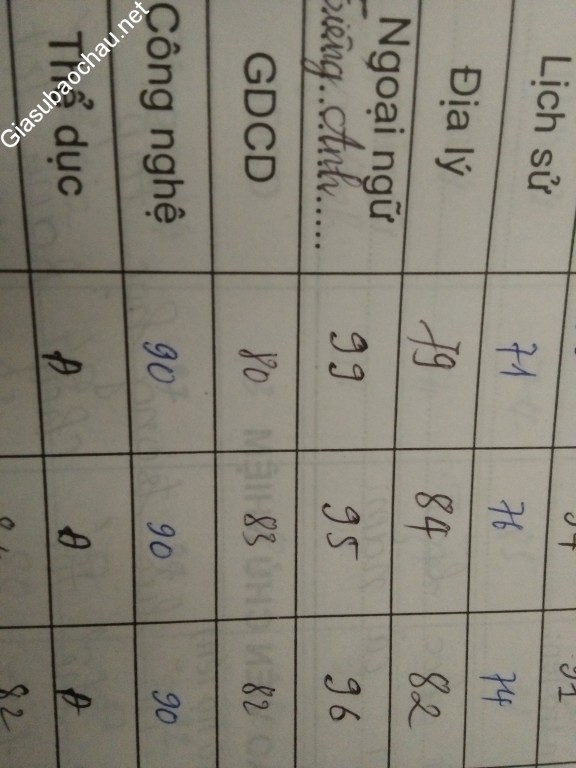 Lịch sử 71 76 74
Địa lý 79 84 82
Ngoại ngữ
Tiếng Anh..... 99 95 96
GDCD 80 83 82
Công nghệ 90 90 90
Thể dục Đ Đ Đ
82
Giasubaochau.net